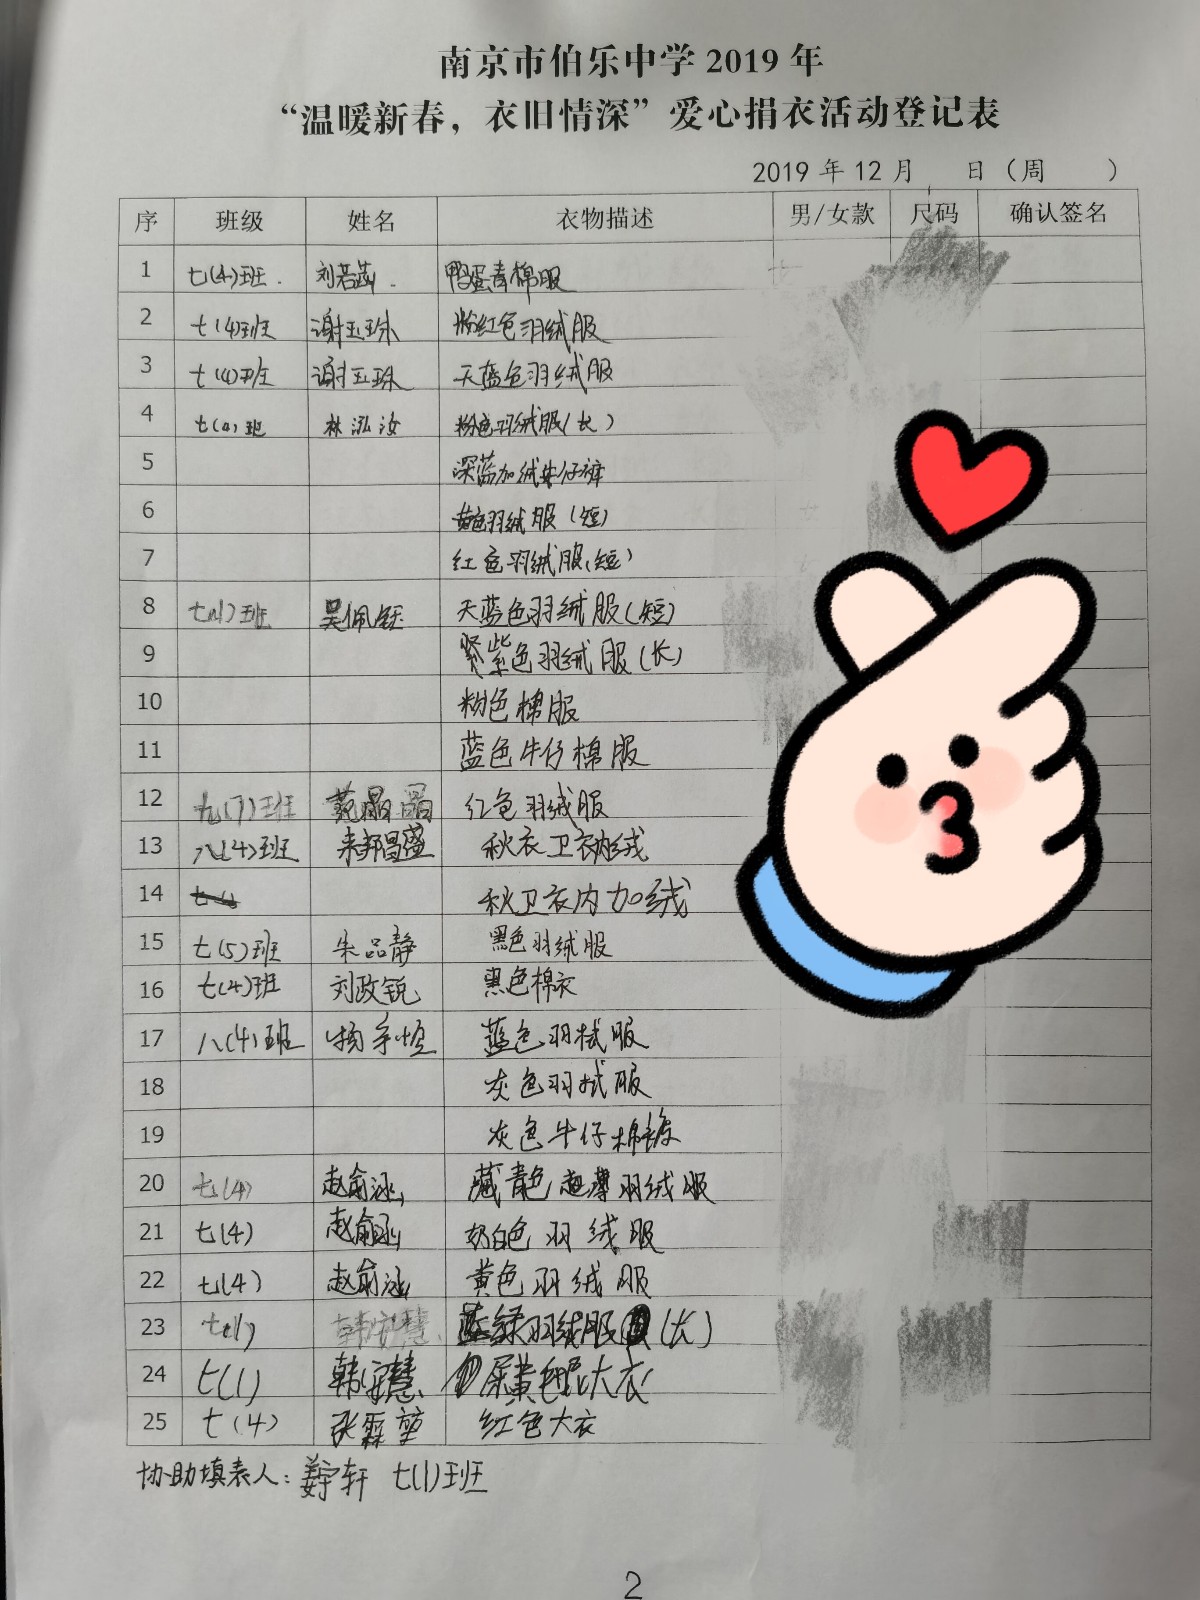 南京市伯乐中学2019年
“温暖新春，衣旧情深”爱心捐衣活动登记表
2019年12月 日（周 ）
序 班级 姓名 衣物描述 男/女款 尺码 确认签名
1 七(4)班. 刘若菡. 鸭蛋青棉服
2 七(4)班 谢玉珠 粉红色羽绒服
3 七(4)班 谢玉珠 天蓝色羽绒服
4 七(4)班 林泓汝 粉色羽绒服(长)
5 深蓝加绒牛仔裤
6 黄色羽绒服(短)
7 红色羽绒服(短)
8 班 吴佩钰 天蓝色羽绒服(短)
9 紫色羽绒服(长)
10 粉色棉服
11 蓝色牛仔棉服
12 九(7)班 范晶晶 红色羽绒服
13 八(4)班 昌盛 秋衣卫衣内绒
14 秋卫衣内加绒
15 七(5)班 朱品静 黑色羽绒服
16 七(4)班 刘政锐 黑色棉衣
17 八(4)班 杨 恒 蓝色羽绒服
18 灰色羽绒服
19 灰色牛仔棉裤
20 七(4) 赵俞涵 藏青色 薄羽绒服
21 七(4) 赵俞涵 奶白色羽绒服
22 七(4) 赵俞涵 黄色羽绒服
23 七(1) 韩安慧 蓝绿羽绒服(长)
24 七(1) 韩安慧 黄色 大衣
25 七(4) 张霖堃 红色大衣
协助填表人：姜宇轩 七(1)班
2